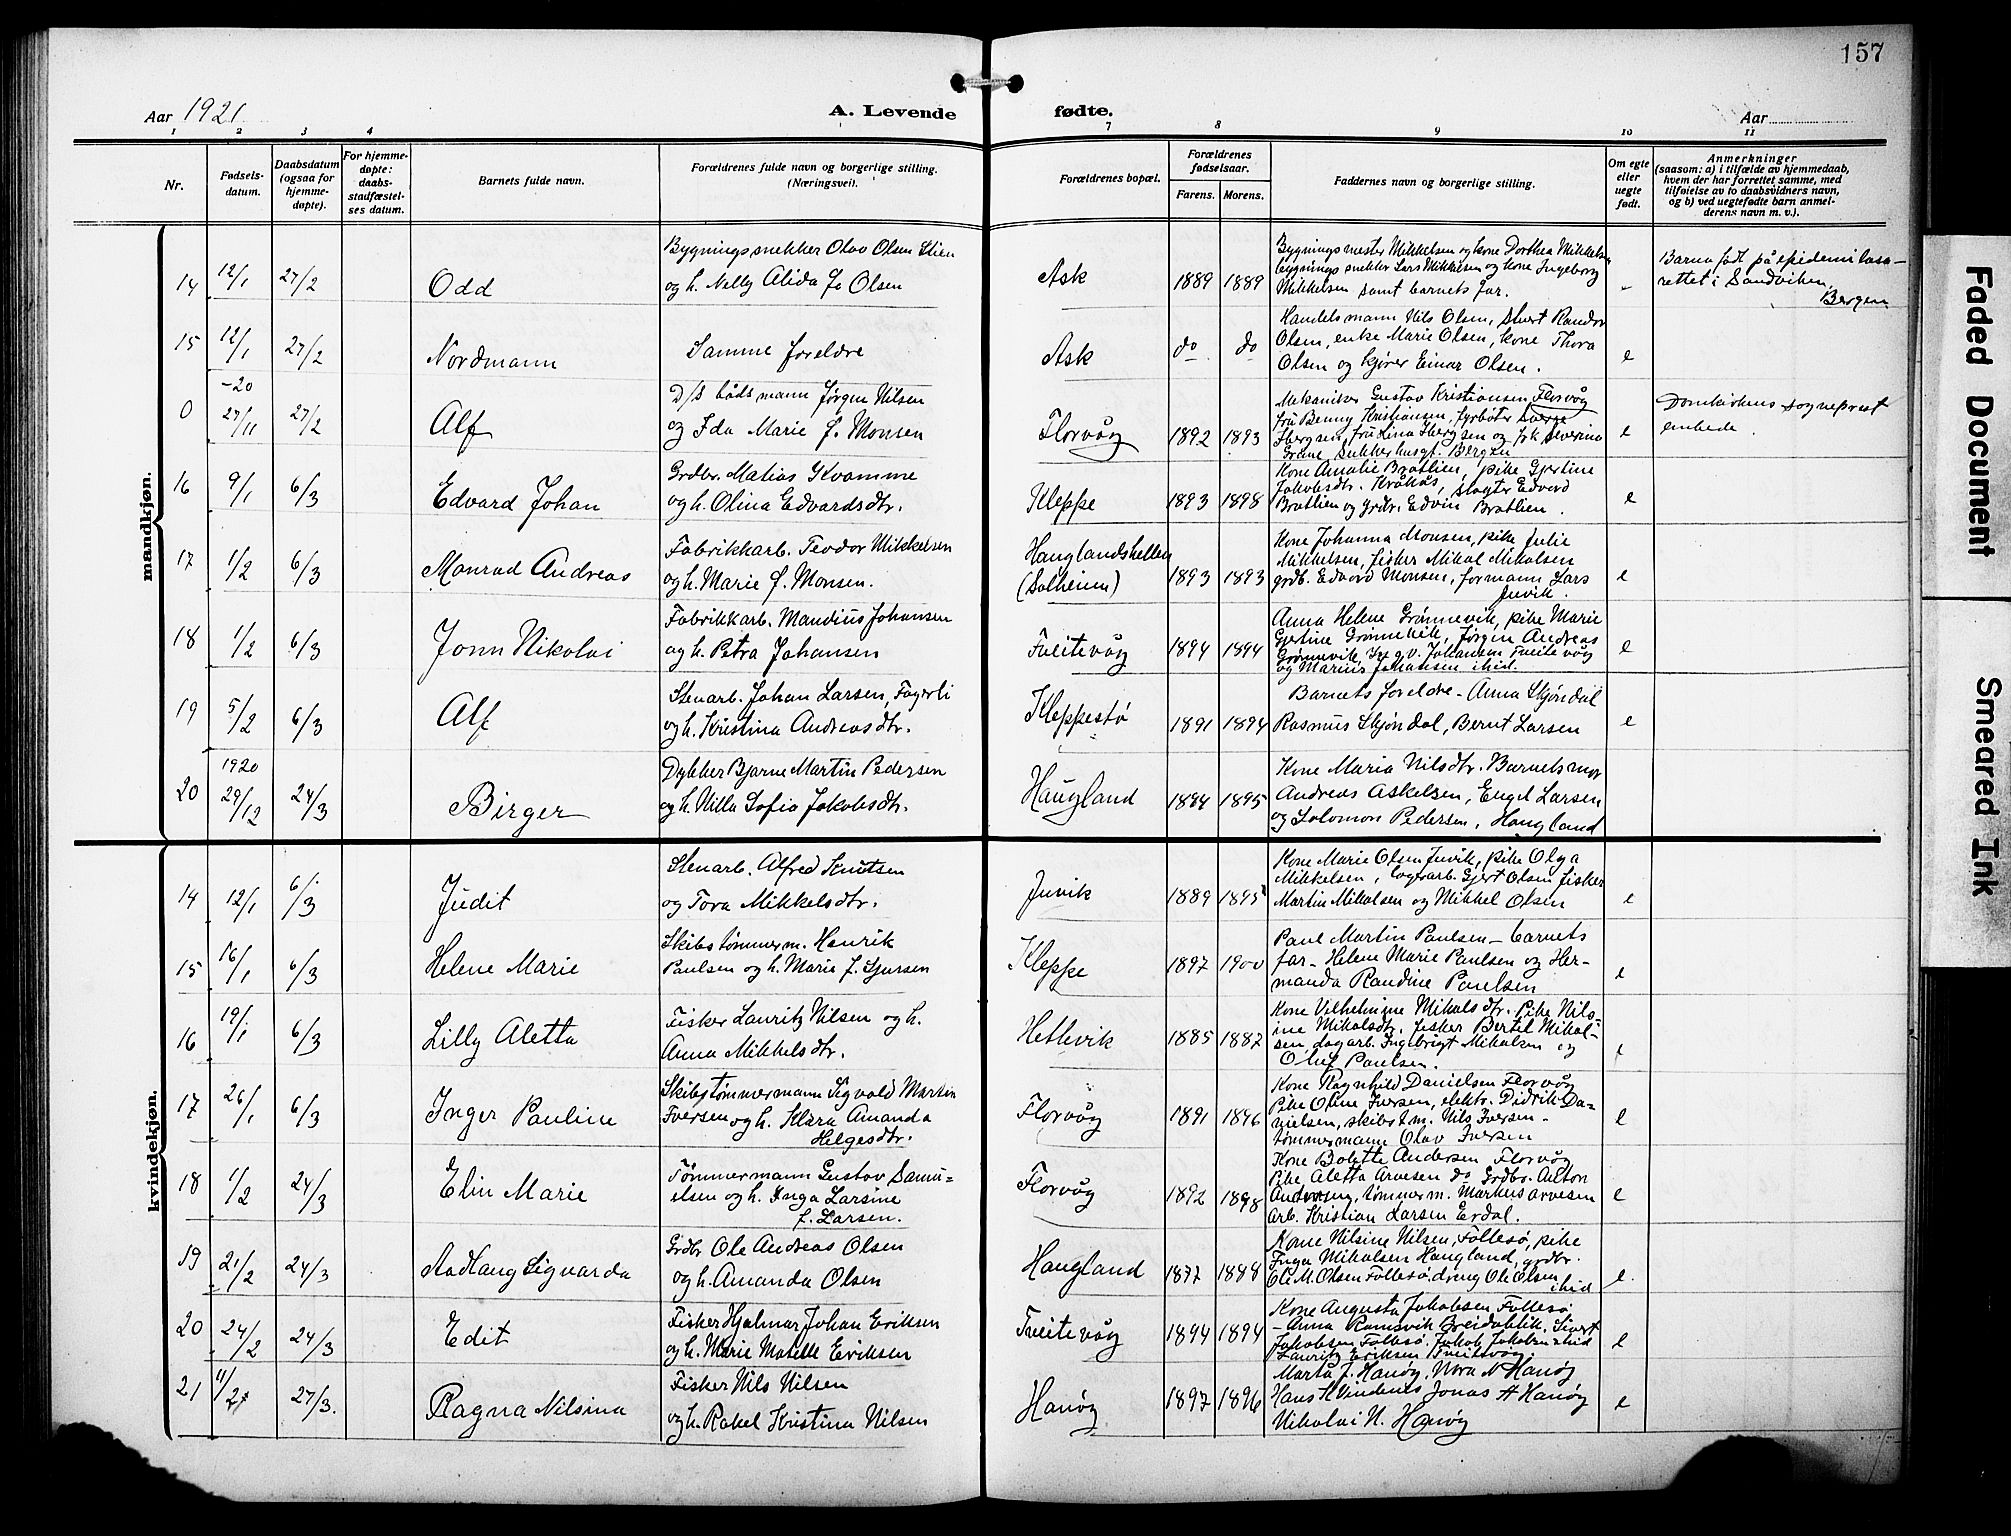 157
Aar 1921
A. Levende fødte.
Aar
1 2 3 4 7 8 9 10 11
Nr.
Fødsels-
datum.
Daabsdatum
(ogsaa for
hjemme-
døpte).
For hjemme-
døpte:
daabs-
stadfæstel-
ses datum.
Barnets fulde navn.
Forældrenes fulde navn og borgerlige stilling.
(Næringsvei).
Forældrenes bopæl.
Forældrenes
fødselsaar.
Farens. Morens.
Faddernes navn og borgerlige stilling.
Om egte
eller
uegte
født.
Anmerkninger
(saasom: a) i tilfælde av hjemmedaab,
hvem der har forrettet samme, med
tilføielse av to daabsvidners navn,
og b) ved uegtefødte barn anmel-
derens navn m. v.).
mandkjøn.
14 12/1 27/2 Odd
Bygningssnekker Olav Olsen Stien
og h. Nelly Alida f. Olsen
Ask 1889 1889
Bygningsmester Mikkelsen og kone Dorthea Mikkelsen
bygningssnekker Lars Mikkelsen og kone Ingeborg
Mikkelsen samt barnets far.
Barna født på epidemilasa-
rettet i Sandviken,
Bergen
15 12/1 27/2 Nordmann
Samme foreldre
Ask do do
Handelsmann Nils Olsen, Sivert Randor
Olsen, enke Marie Olsen, kone Thora
Olsen og kjører Einar Olsen.
e
0 -20 27/11 27/2 Alf
D/S bådsmann Jørgen Nilsen
og Ida Marie f. Monsen
Florvåg 1892 1893
Mekaniker Gustav Kristiansen Florvåg
fru Benny Kristiansen, fyrbøter
og frk Severine
Bergen
e
Domkirkens sogneprest
embede.
16 9/1 6/3 Edvard Johan
Grdbr. Matias Kvamme
og h. Olina Edvardsdtr.
Kleppe 1893 1898
Kone Amalie Bratlien, pike Gjertine
Jakobsdtr. Kråkås, slagter Edvard
Bratlien og grdr. Edvin Bratlien.
e
17 1/2 6/3 Monrad Andreas
Fabrikkarb. Teodor Mikkelsen
og h. Marie f. Monsen.
Hauglandshellen
(Solheim)
1893 1893
Kone Johanna Monsen, pike Julie
Mikkelsen, fisker Mikal Mikalsen
grdb. Edvard Monsen, formann Lars
Juvik.
e
18 1/2 6/3 Jonn Nikolai
Fabrikkarb. Mandius Johansen
og h. Petra Johansen
Tveitevåg 1894 1894
Anna Helene Grønnevik, pike Marie
Gjertine Grønnevik, Jørgen Andreas
Grønnevik, Johansen Tveitevåg
og Marius Johansen ibid.
e
19 5/2 6/3 Alf
Stenarb. Johan Larsen, Fagerli
og h. Kristina Andreasdtr.
Kleppestø 1891 1894
Barnets foreldre - Anna Skjøndal
Rasmus Skjøndal, Bernt Larsen
e
20 1920 29/12 24/3 Birger
Dykker Bjarne Martin Pedersen
og h. Nilla Sofia Jakobsdtr.
Haugland 1894 1895
Kone Maria Nilsdtr. Barnets mor
Andreas Askelsen, Engel Larsen
og Salomon Pedersen, Haugland
kvindekjøn.
14 12/1 6/3 Judit
Stenarb. Alfred Knutsen
og Tora Mikkelsdtr.
Juvik 1889 1895
Kone Marie Olsen Juvik, pike Olga
Mikkelsen, lagerarb. Gjert Olsen fisker
Martin Mikalsen og Mikkel Olsen
e
15 16/1 6/3 Helene Marie
Skibstømmerm. Henrik
Paulsen og h. Marie f. Sjursen
Kleppe 1897 1900
Paul Martin Paulsen - barnets
far - Helene Marie Paulsen og Her-
manda Randine Paulsen
e
16 19/1 6/3 Lilly Aletta
Fisker Lauritz Nilsen og h.
Anna Mikkelsdtr.
Hetlevik 1885 1882
Kone Vilhelmine Mikalsdtr. Pike Nils-
ine Mikalsdtr. fisker Bertil Mikal-
sen dagarb. Ingebrigt Mikalsen og
Oluf Paulsen.
17 26/1 6/3 Inger Pauline
Skibstømmermann Sigvald Martin
Iversen og h. Klara Amanda
Helgesdtr.
Florvåg 1891 1896
Kone Ragnhild Danielsen Florvåg
Pike Oline Iversen, elektr. Didrik Da-
nielsen, skibstm. Nils Iversen -
tømmermann Olav Iversen
e
18 1/2 24/3 Elin Marie
Tømmermann Gustav Samu-
elsen og h. Inga Larsine
f. Larsen.
Florvåg 1892 1898
Kone Bolette Andersen Florvåg
Pike Aletta Arvesen do Grdbr. Anton
Andersen, tømmerm. Markus Arvesen
arb. Kristian Larsen Erdal.
e
19 21/2 24/3 Aadlaug Sigvarda
Grdbr Ole Andreas Olsen
og h. Amanda Olsen
Haugland 1877 1888
Kone Nilsine Nilsen, Follesø, pike
Inga Mikalsen Haugland, grdbr.
Ole M. Olsen Follesø, dreng Ole Olsen
ibid
e.
20 24/2 24/3 Edit
Fisker Hjalmar Johan Eriksen
og h. Marie Matelle Eriksen
Tveitevåg 1894 1894
Kone Augusta Jakobsen Follesø
- Anna Ramsvik Breidablik, Sivert
Jakobsen Follesø, Jakob Jakobsen ibid
Lauritz Eriksen Tveitevåg.
e
21 11/2 27/3. Ragna Nilsina
Fisker Nils Nilsen
og h. Rakel Kristina Nilsen
Hanøy 1897 1896
Marta J. Hanøy, Nora N Hanøy
Hans H Vindenes Jonas A Hanøy
Nikolai N. Hanøy
e
Faded Document
Smeared Ink